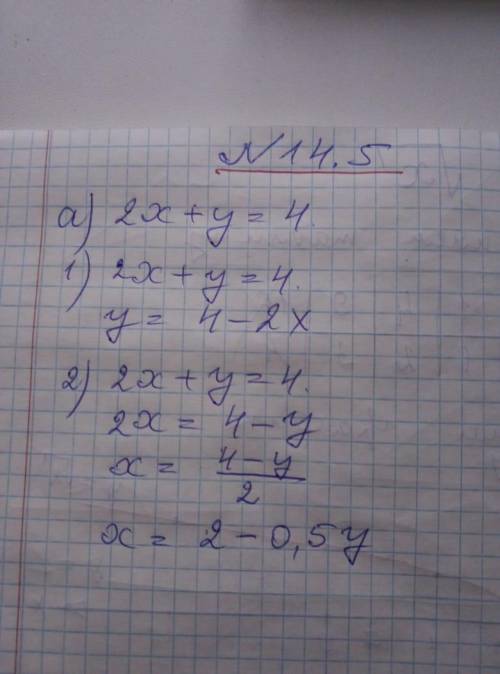 N 14.5
а) 2x + y = 4.
1) 2x + y = 4.
y = 4 - 2x
2) 2x + y = 4.
2x = 4 - y
x = 4 - y / 2
x = 2 - 0,5y